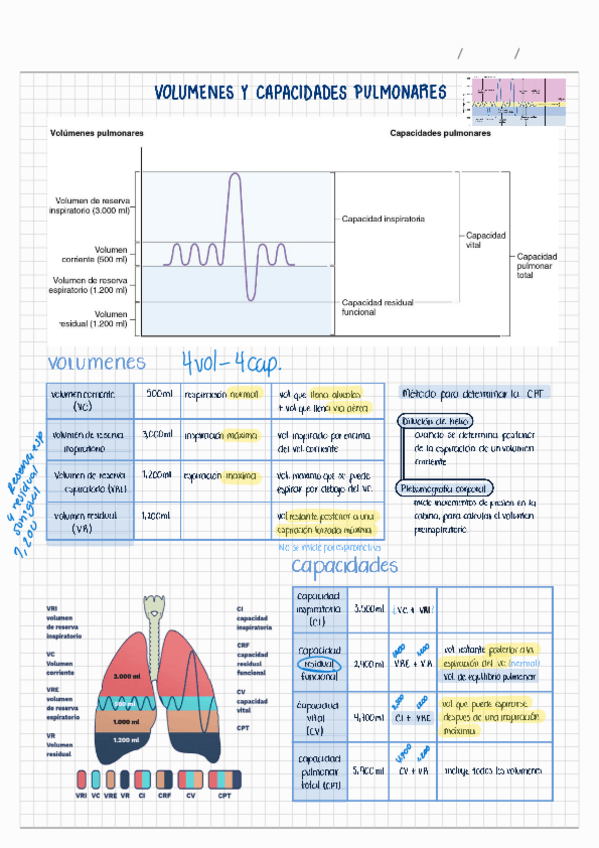 / /
VOLUMENES Y CAPACIDADES PULMONARES
Volúmenes pulmonares
Capacidades pulmonares
Volumen de reserva
inspiratorio (3.000 ml)
Volumen
corriente (500 ml)
Volumen de reserva
espiratorio (1.200 ml)
Volumen
residual (1.200 ml)
Capacidad inspiratoria
Capacidad residual
funcional
Capacidad
vital
Capacidad
pulmonar
total
volumenes
4 vol - 4 cap.
volumen corriente
(VC)
500ml
respiración normal
vol que llena alveolos
+ vol que llena via aérea
volumen de reserva
inspiratorio
3,000ml
inspiración máxima
vol inspirado por encima
del vol corriente
Volumen de reserva
espiratorio (VRE)
1,200ml
espiración maxima
vol. maximo que se puede
espirar por debajo del vc.
volumen residual
(VR)
1,200ml
vol restante posterior a una
espiración forzada máxima
No se mide por espirometria
Reserva esp
y residual
son igual
1,200
Método para determinar la CPT
Dilución de helio
cuando se determina posterior
de la espiración de un volumen
corriente
Pletismografía corporal
mide incrementos de presión en la
cabina, para calcular el volumen
capacidades
capacidad
inspiratoria
(CI)
3,500ml
(VC + VRI)
capacidad
residual
funcional
2,400ml
1,200 1,200
VRE + VR
vol restante posterior a la
espiración del vc (normal)
vol. de equilibrio pulmonar
capacidad
vital
(CV)
4,700ml
3,500 1,200
CI + VRE
vol que puede espirarse
despues de una inspiración
máxima
capacidad
pulmonar
total (CPT)
5,900ml
4,700 1,200
CV + VR
incluye todos los volumenes
VRI
volumen
de reserva
inspiratorio
VC
Volumen
corriente
VRE
volumen
de reserva
espiratorio
VR
Volumen
residual
3.000 ml
500 ml
1.000 ml
1.200 ml
CI
capacidad
inspiratoria
CRF
capacidad
residual
funcional
CV
capacidad
vital
CPT
VRI VC VRE VR CI CRF CV CPT